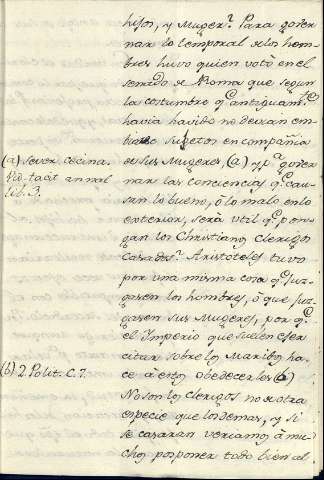 hijos, y Mugerˢ. Para gover
nar lo temporal de los hom
bres huvo quien votó en el
senado de Roma que segun
la costumbre qᵉ antiguamᵗᵉ
havia havido no devian em
biarse sugetos en compañia
de sus Mugeres, (a) y pᵃ gover
nar las conciencias, qᵉ cau
san lo bueno, ò lo malo en lo
exterior, serà util qᵉ pon
gan los Christianos clerigos
casados? Aristoteles tuvo
por una misma cosa qᵉ juz
gasen los hombres, ò que juz
gasen sus Mugeres, por qᵉ
el Imperio que suelen exer
citar sobre los Maridos, ha
ce à estos obedecerles (b)
No son los clerigos no de otra
especie que los demas, y si
se casaran veriamos à mu
chos posponer todo bien al
(a) Sever. Cecina.
Vid. tacit. annal
lib. 3.
(b) 2. Polit. C. 7.